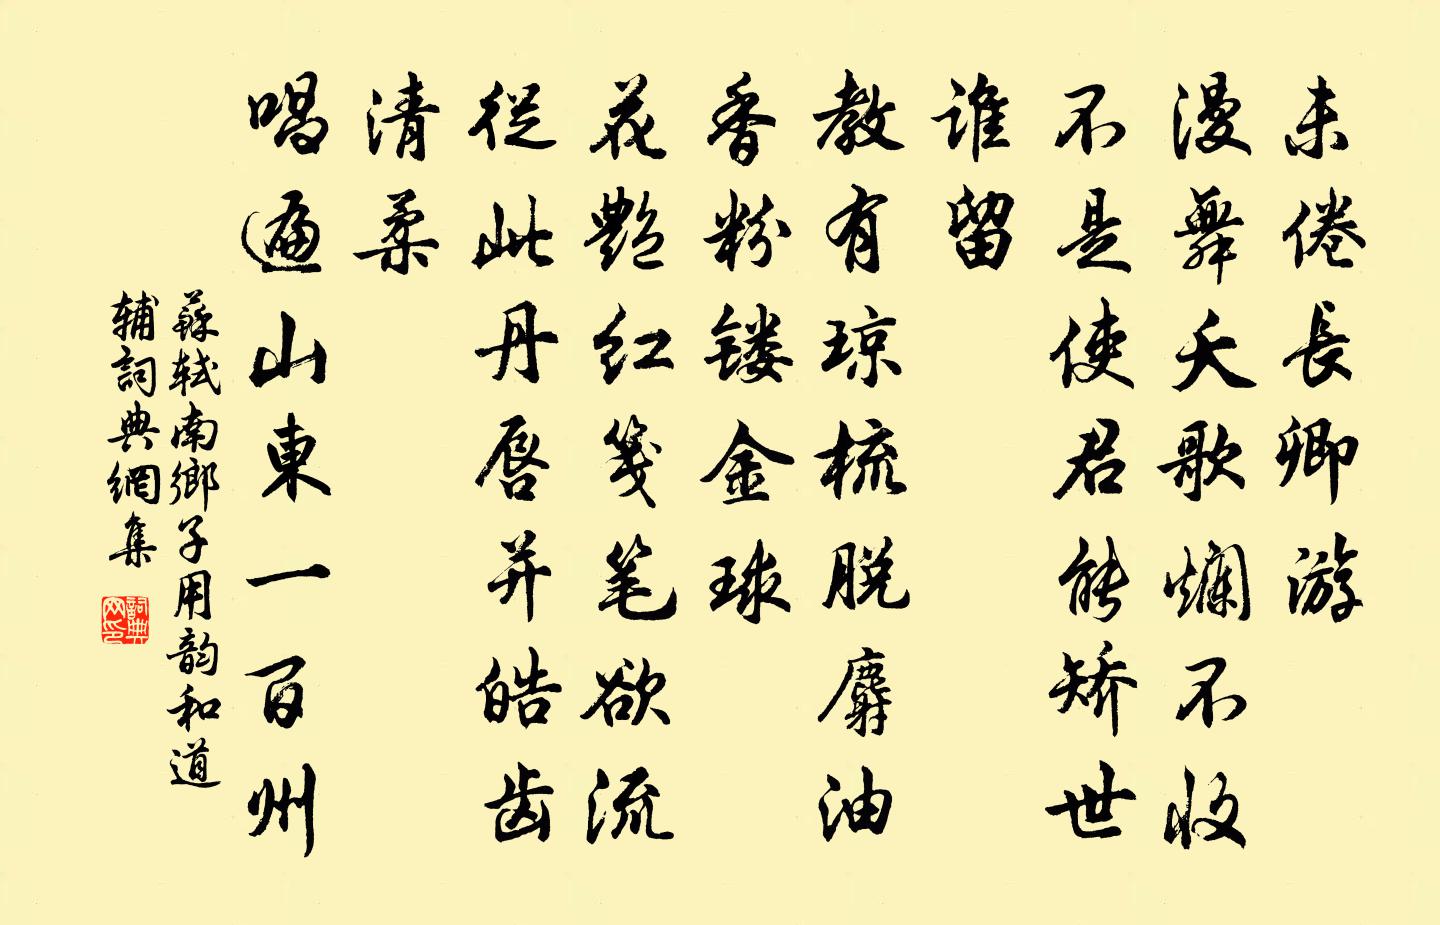 未倦長卿游
漫舞夭歌爛不收
不是使君能矫世
谁留
教有琼梳脱麝油
香粉镂金球
花艷红笺笔欲流
從此丹唇并皓齿
清柔
唱遍山東一百州
蘇轼南鄉子用韵和道
辅詞典網集
詞典网印